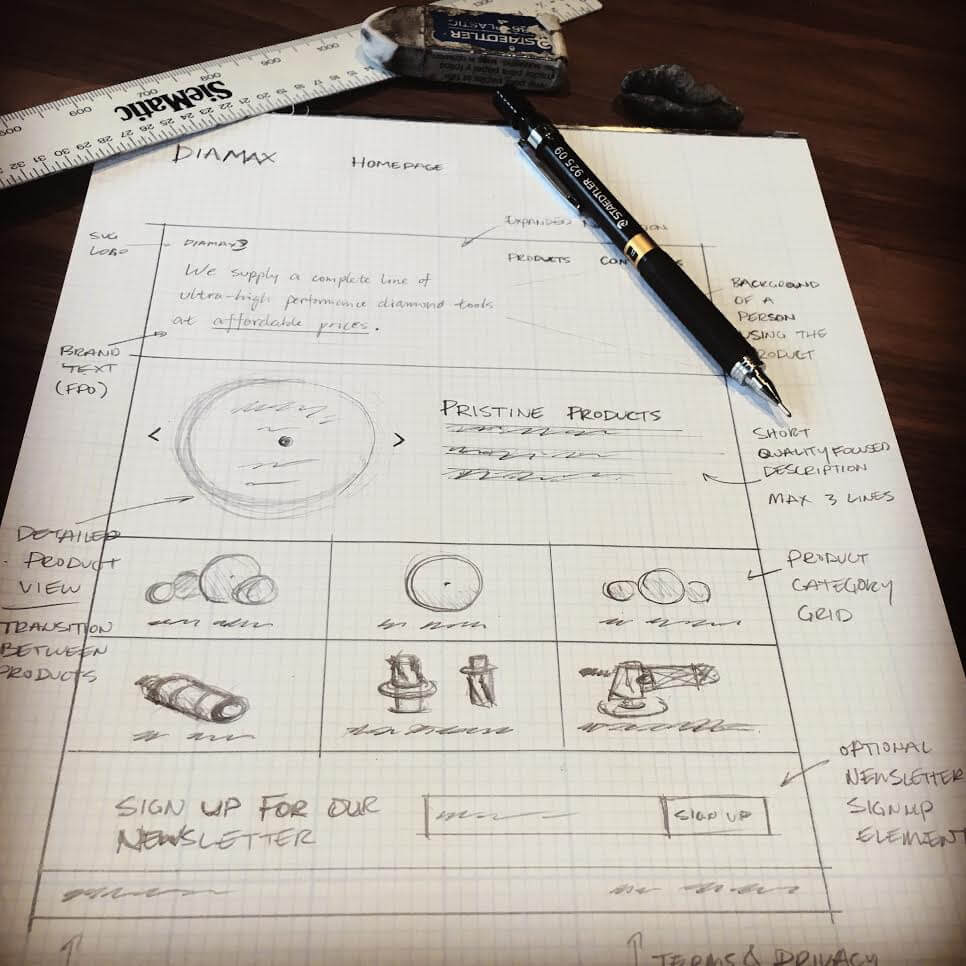 SieMatic
STAEDTLER
PLASTIC
STAEDTLER 925 09
DIAMAX HOMEPAGE
EXPANDED
SVG
LOGO
DIAMAX
PRODUCTS
We supply a complete line of
ultra-high performance diamond tools
at affordable prices.
BACKGROUND
OF A
PERSON
USING THE
PRODUCT
BRAND
TEXT
(FPO)
< >
PRISTINE PRODUCTS
SHORT
QUALITY FOCUSED
DESCRIPTION
MAX 3 LINES
DETAILED
PRODUCT
VIEW
TRANSITION
BETWEEN
PRODUCTS
PRODUCT
CATEGORY
GRID
OPTIONAL
NEWSLETTER
SIGNUP
ELEMENT
SIGN UP FOR OUR
NEWSLETTER
SIGN UP
TERMS & PRIVACY